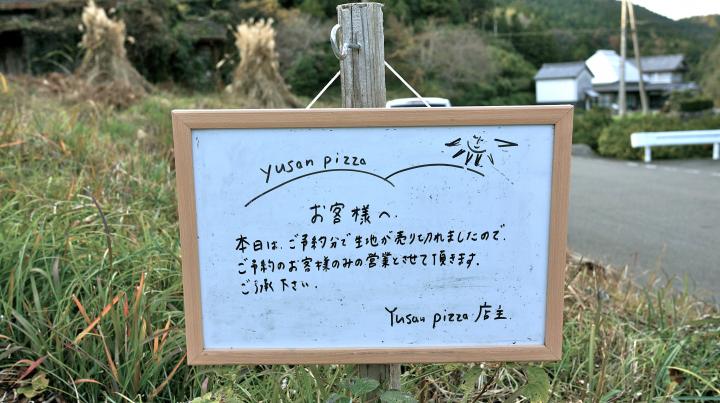 yusan pizza
お客様へ.
本日は、ご予約分で生地が売り切れましたので、
ご予約のお客様のみの営業とさせて頂きます.
ご了承下さい.
Yusan pizza 店主